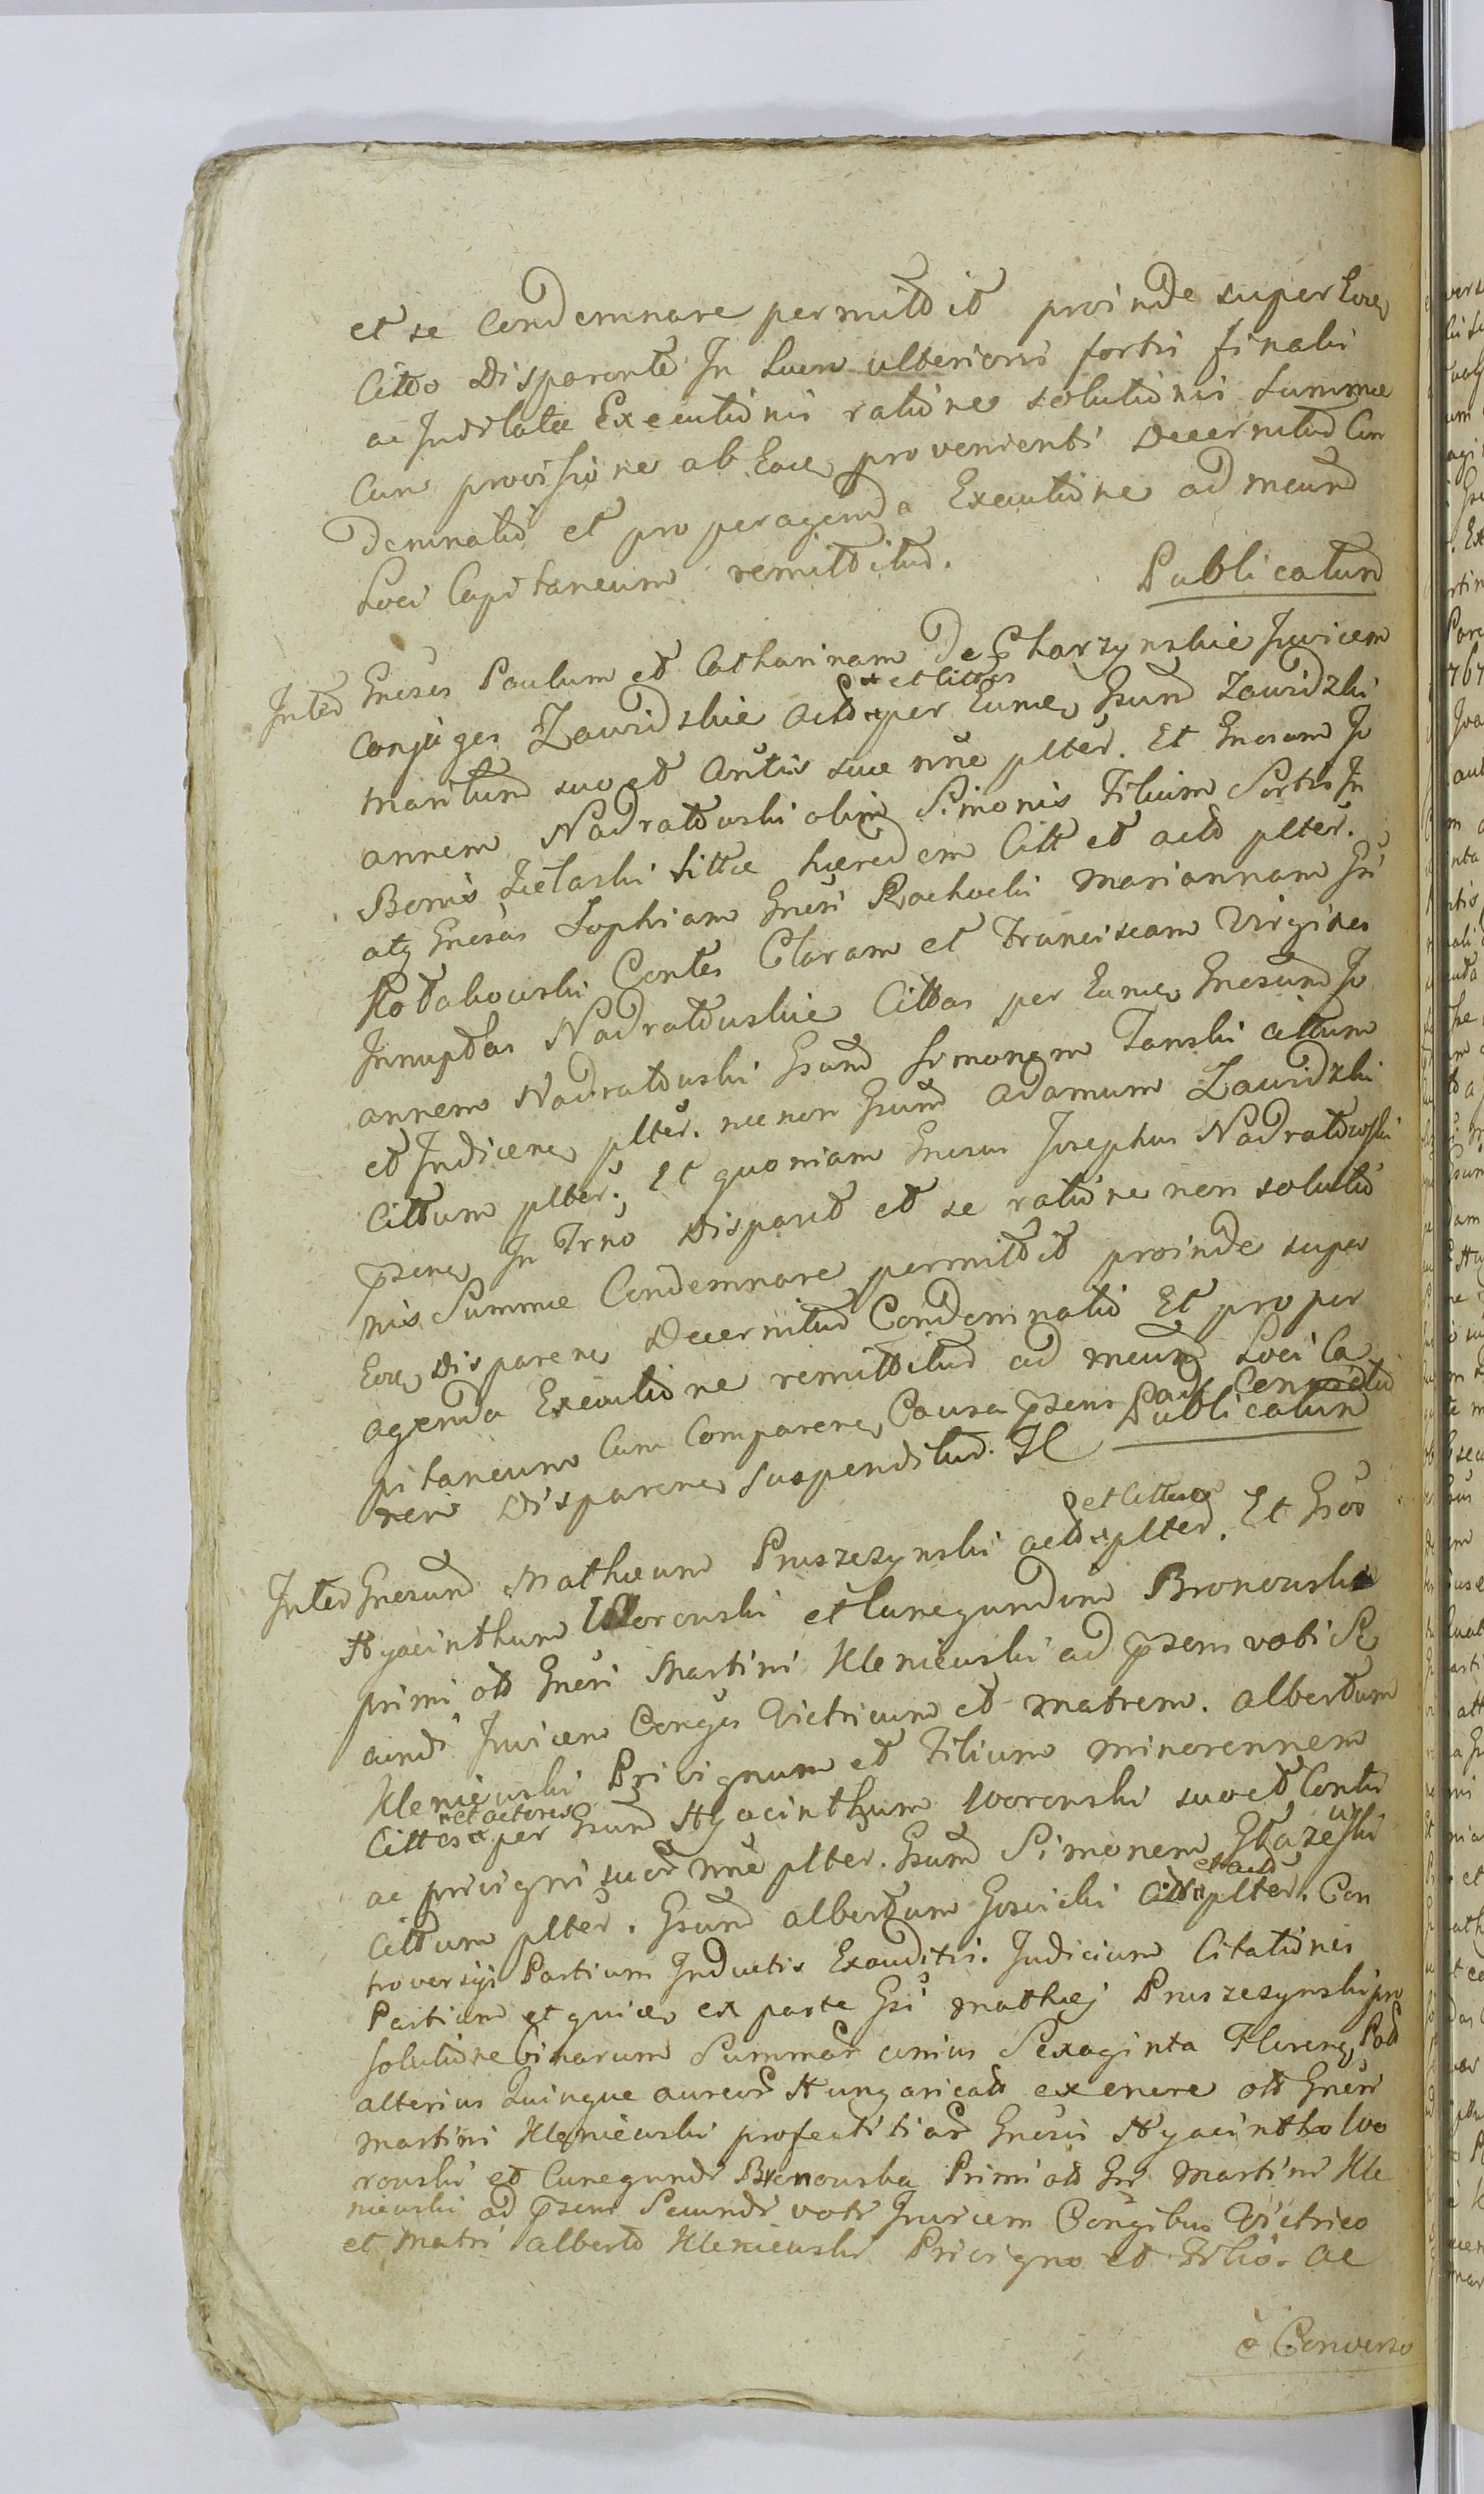 et se Condemnare permittit proinde super Eoce
Citto Disparente In Lucro ulterioris fortii finalis
ac Indilatae Executionis ratione solutionis Summae
Cum provisione ab Eace provenienti Decernitur Con
demnatio et pro peragenda Executione ad meund
Loci Capitaneum remittitur.
Publicatum
Inter Gnesos Paulum et Catharinam De Charzynskie Invicem
Conjuges Zawidzkie Act per Eume Gsum Zawidzki
et Cittos
maritum suo et Contis suae nne plter. Et Gnesum Jo
annem Nadratowski olim Simonis Filium Sortis In
Bonis Zielaski sittae haeredem Citt et act plter.
atq Gnesas Sophiam Gnesi Rachocki Mariannam Gsi
Kotakowski Contes Claram et Franciscam Virgines
Innuptas Nadratowskie Cittas per Eume Gnesum Jo
annem Nadratowski Gsum Simonem Tanski cittum
et Judicem plter. nec non Gsum Adamum Zawidzki
Cittum plter. Et quoniam Gnesus Josephus Nadratowski
psens In Trno Disparuit et se ratione non solutio
nis Summae Condemnare permittit proinde super
Eoce Disparene Decernitur Condemnatio Et pro per
agenda Executione remittitur ad meund Loci Ca
pitaneum Cum Comparene Causa psens ads Condemtio
nem Disparene Suspenditur.
Publicatum
Inter Gnesum Mathaeum Pruszczynski act plter. Et Gsos
et Cittum
Hyacinthum Worowski et Cunegundem Bronowska
primi ott Gnesi Martini Kleniewski ad psens voti Se
cundi Invicem Conges Vitricum et matrem. Albertum
Kleniewski Privignum et Filium minorennem
Cittos per Gsum Hyacinthum Worowski suo et Contis
et actores
ac privigni suor nne plter. Gsum Simonem Głazewski
Cittum plter. Gsum Albertum Gosicki Citt plter. Con
et act
troversiis Partium Inductis Exauditis. Judicium Citationes
Partium et quia ex parte Gsi Mathaej Pruszczynski pro
solutione binarum Summar unius Sexaginta Floreng Pol
alterius Quinque aureor Hungaricali ex enere ott Gnesi
Martini Kleniewski profectitiar Gnesis Hyacintho Wo
rowski et Cunegundi Bronowska Primi ott Gsi Martini Kle
niewski ad psens Secundi voti Invicem Congibus Vitrico
et Matri Alberto Kleniewski Privigno et Filio. ac
è Converso